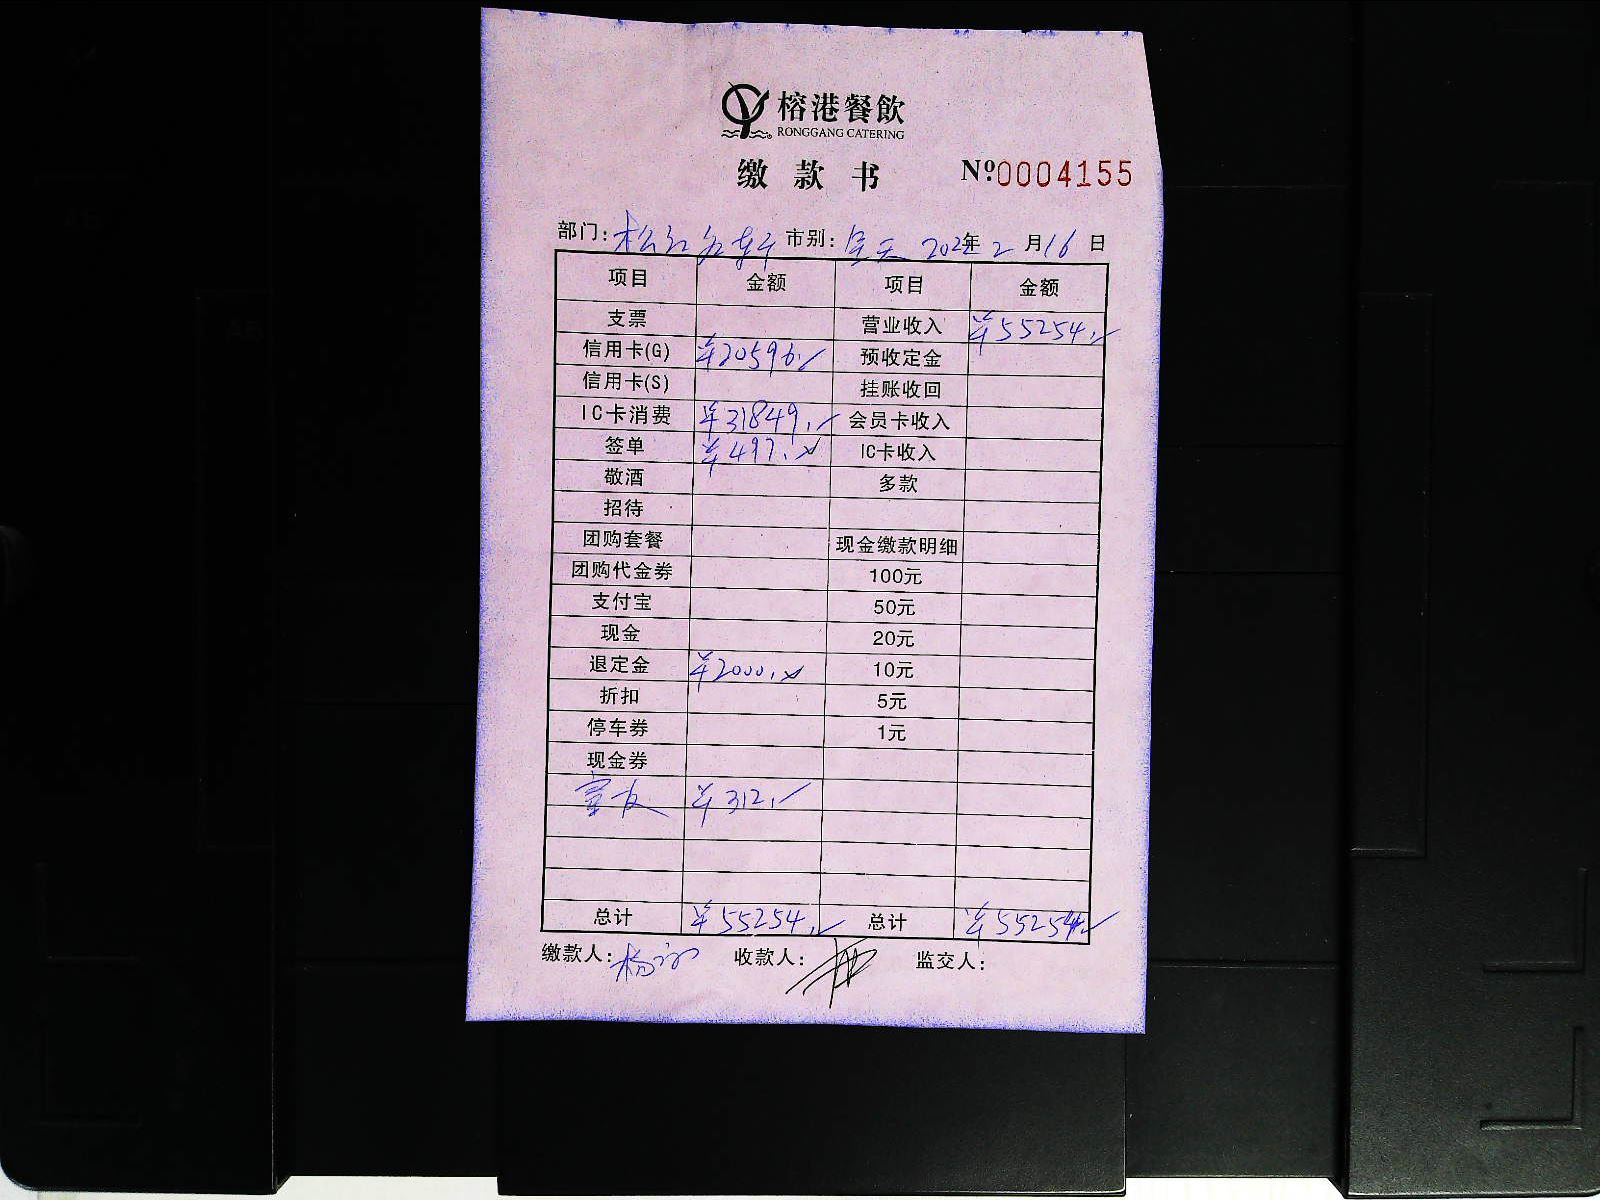 榕港餐飲
RONGGANG CATERING
缴款书 №0004155
部门: 松江名轩 市别: 全天 2022年 2月16日
项目 金额 项目 金额
支票 营业收入 ¥55254.
信用卡(G) ¥20596. 预收定金
信用卡(S) 挂账收回
IC卡消费 ¥31849. 会员卡收入
签单 ¥497. IC卡收入
敬酒 多款
招待
团购套餐 现金缴款明细
团购代金券 100元
支付宝 50元
现金 20元
退定金 ¥2000. 10元
折扣 5元
停车券 1元
现金券
¥312.
总计 ¥55254. 总计 ¥55254.
缴款人: 收款人: 监交人: